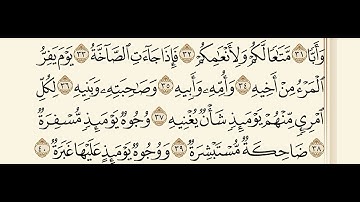 وَأَبًّا ٣١ مَّتَاعًا لَّكُمْ وَلِأَنْعَامِكُمْ ٣٢ فَإِذَا جَاءَتِ الصَّاخَّةُ ٣٣ يَوْمَ يَفِرُّ
الْمَرْءُ مِنْ أَخِيهِ ٣٤ وَأُمِّهِ وَأَبِيهِ ٣٥ وَصَاحِبَتِهِ وَبَنِيهِ ٣٦ لِكُلِّ
امْرِئٍ مِّنْهُمْ يَوْمَئِذٍ شَأْنٌ يُغْنِيهِ ٣٧ وُجُوهٌ يَوْمَئِذٍ مُّسْفِرَةٌ
٣٨ ضَاحِكَةٌ مُّسْتَبْشِرَةٌ ٣٩ وَوُجُوهٌ يَوْمَئِذٍ عَلَيْهَا غَبَرَةٌ ٤٠